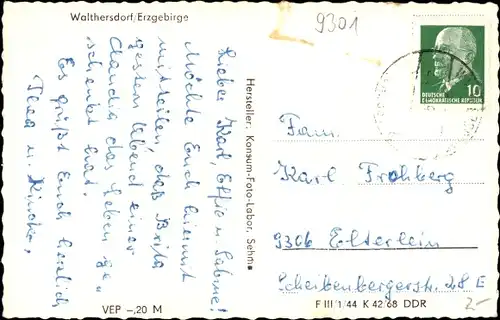 Walthersdorf/Erzgebirge
9301
Liebe Karl, Effi u. Sabine!
Möchte Euch hiermit
mitteilen, daß Brita
gestern Abend einer
Claudia das Leben ge-
schenkt hat.
Es grüßt Euch herzlich
Thea u. Kinder.
VEP -,20 M
Hersteller: Konsum-Foto-Labor, Sehma
10
DEUTSCHE
DEMOKRATISCHE REPUBLIK
Fam.
Karl Frohberg
9306 Elterlein
Scheibenbergerstr. 28 E
F III/1/44 K 42/68 DDR
2-